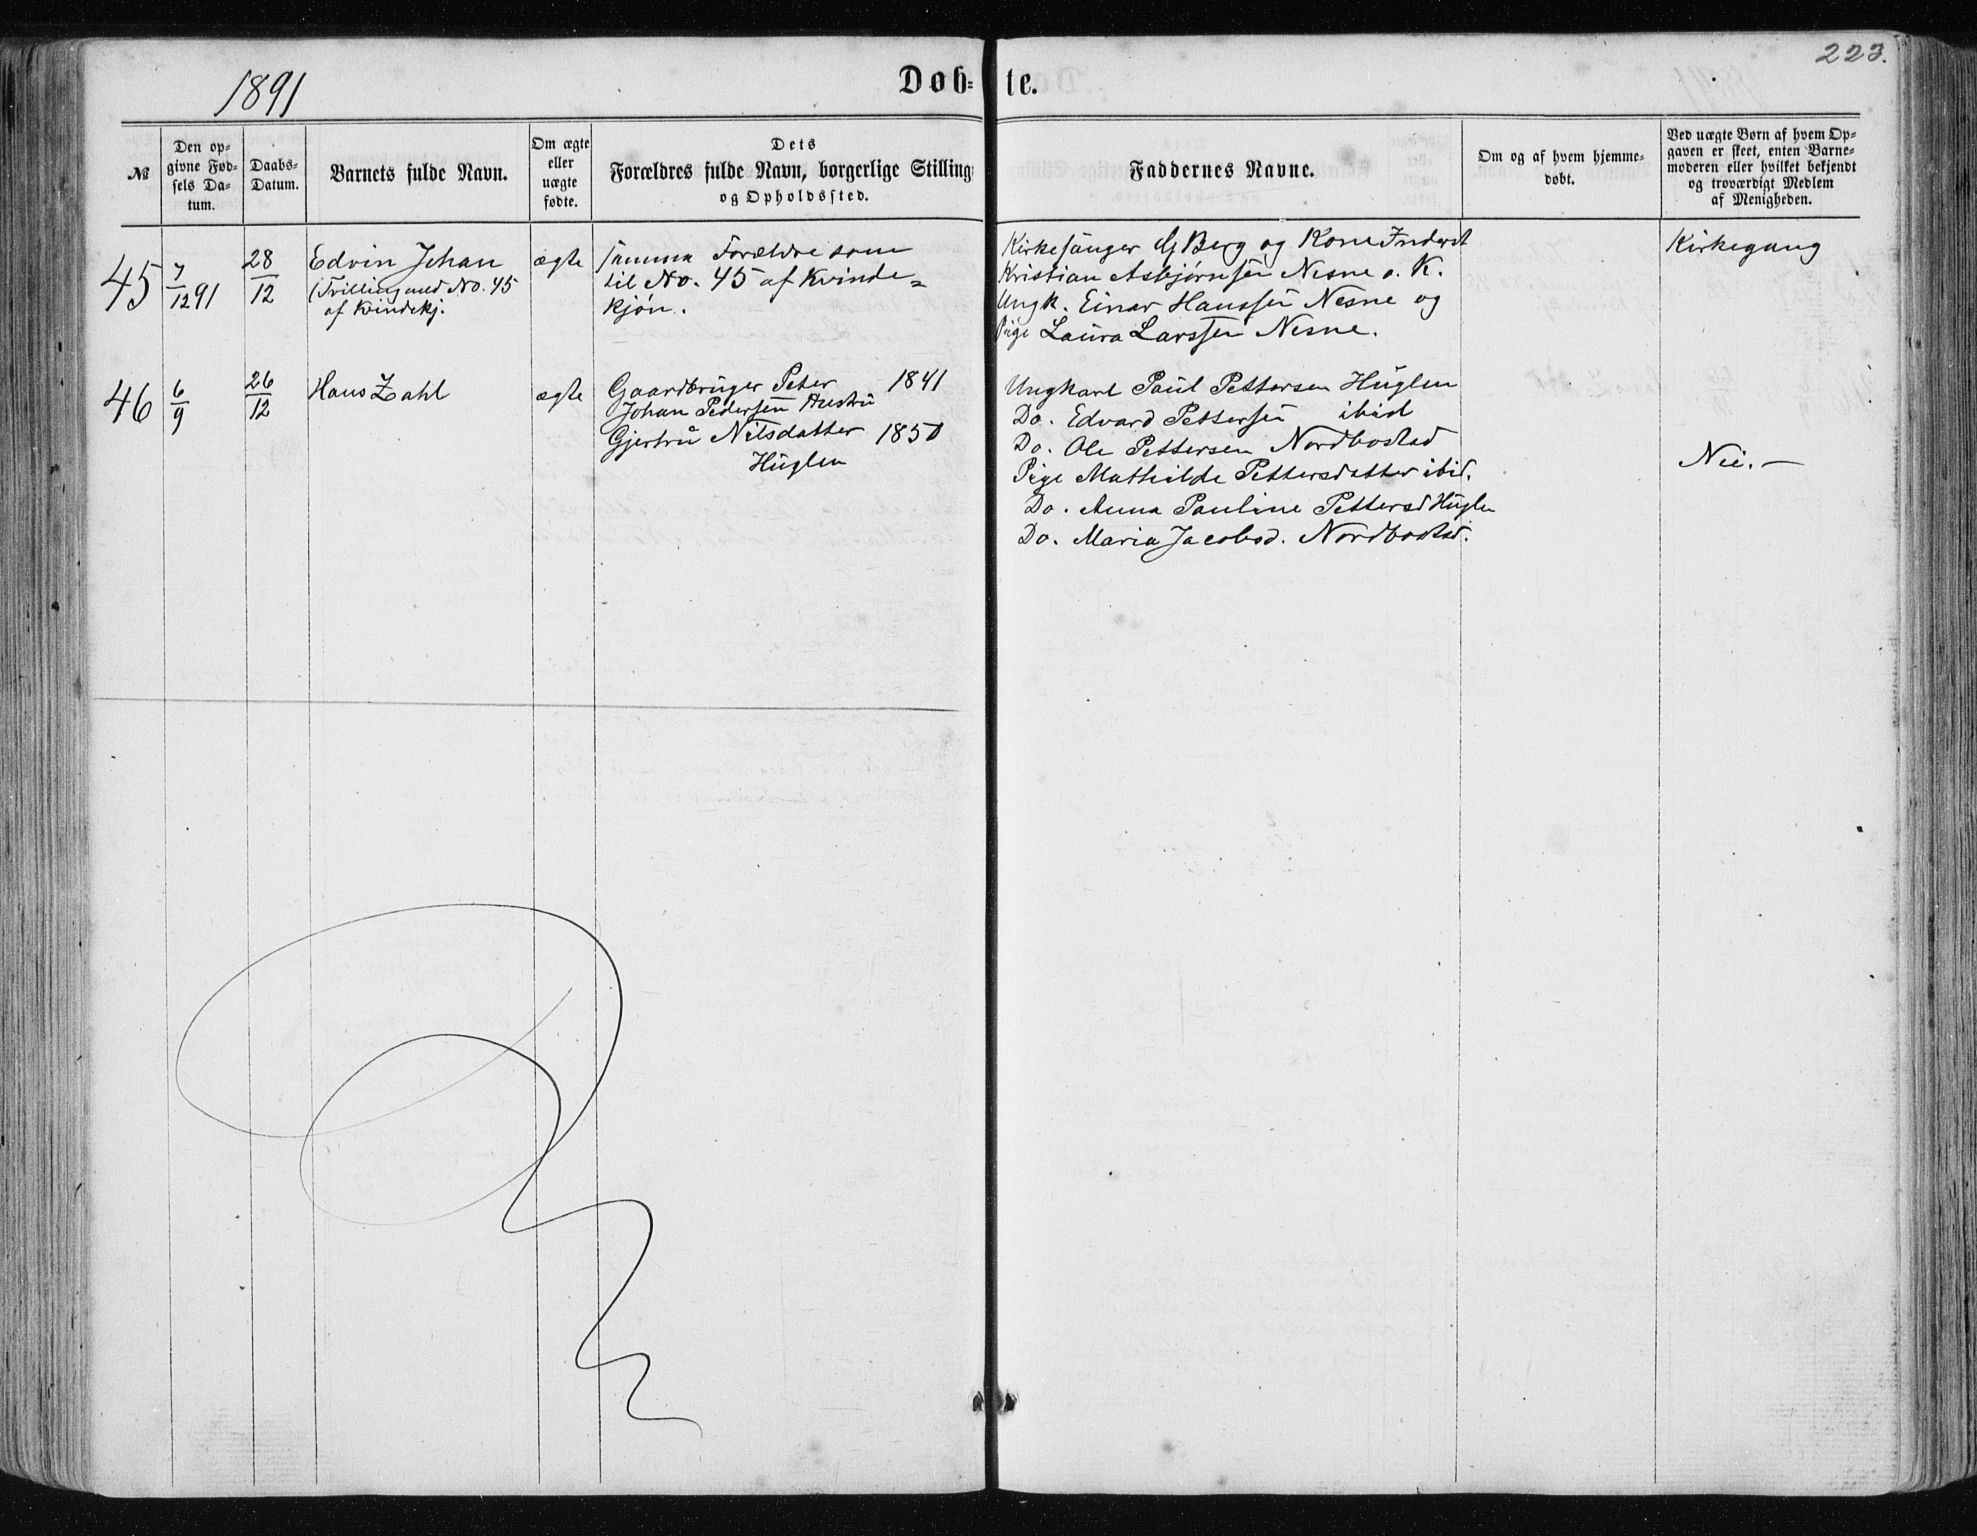 223.
1891
Døb-te.
№
Den op-
givne Fød-
sels Da-
tum.
Daabs-
Datum.
Barnets fulde Navn.
Om ægte
eller
uægte
fødte.
Dets
Forældres fulde Navn, borgerlige Stilling
og Opholdssted.
Faddernes Navne.
Om og af hvem hjemme-
døbt.
Ved uægte Børn af hvem Op-
gaven er skeet, enten Barne-
moderen eller hvilket bekjendt
og troværdigt Medlem
af Menigheden.
45
7/12 91
28/12
Edvin Johan
(Tvilling med No. 45
af Kvindekj.
ægte
samma Forældre som
til No. 45 af Kvinde=
kjøn.
Kirkesanger G Berg og Kone Inderst
Kristian Asbjørnsen Nesne o. K.
Ungk. Einar Hanssen Nesne og
Pige Laura Larssen Nesne.
Kirkegang
46
6/9
26/12
Hans Zahl
ægte
Gaardbruger Peter 1841
Johan Pedersen Hustru
Gjertru Nilsdatter 1850
Huglen
Ungkarl Paul Pettersen Huglen
Do. Edvard Pettersen ibid
Do. Ole Pettersen Nordbostad
Pige Mathilde Pettersdatter ibid.
Do. Anna Pauline Pettersd Huglen
Do. Maria Jacobsd. Nordbostad.
Nei. —